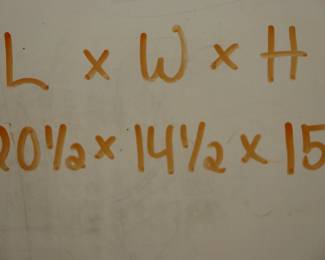 L x W x H
20½ x 14½ x 15